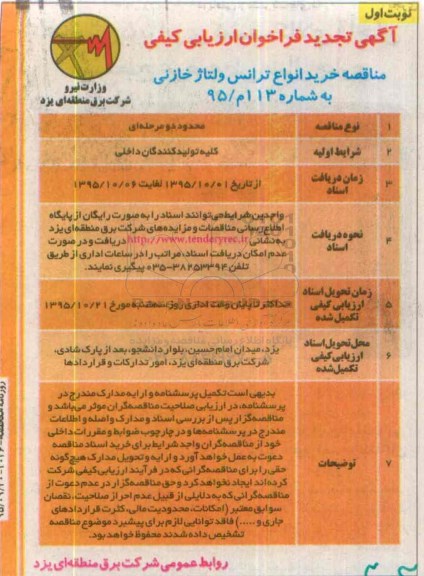 نوبت اول
آگهی تجدید فراخوان ارزیابی کیفی
مناقصه خرید انواع ترانس ولتاژ خازنی
به شماره ۱۱۳م/۹۵
وزارت نیرو
شرکت برق منطقه‌ای یزد
۱ نوع مناقصه محدود دو مرحله‌ای
۲ شرایط اولیه کلیه تولیدکنندگان داخلی
۳ زمان دریافت اسناد از تاریخ ۱۳۹۵/۱۰/۰۱ لغایت ۱۳۹۵/۱۰/۰۶
۴ نحوه دریافت اسناد
واجدین شرایط می‌توانند اسناد را به صورت رایگان از پایگاه
اطلاع رسانی مناقصات و مزایده‌های شرکت برق منطقه‌ای یزد
به نشانی http://www.tenderyrec.ir دریافت و در صورت
عدم امکان دریافت اسناد، مراتب را در ساعات اداری از طریق
تلفن ۳۸۲۵۳۳۹۴-۰۳۵ پیگیری نمایند.
۵ زمان تحویل اسناد
ارزیابی کیفی
تکمیل شده
حداکثر تا پایان وقت اداری روز سه‌شنبه مورخ ۱۳۹۵/۱۰/۲۱
۶ محل تحویل اسناد
ارزیابی کیفی
تکمیل شده
یزد، میدان امام حسین، بلوار دانشجو، بعد از پارک شادی،
شرکت برق منطقه‌ای یزد، امور تدارکات و قراردادها
۷ توضیحات
بدیهی است تکمیل پرسشنامه و ارایه مدارک مندرج در
پرسشنامه، در ارزیابی صلاحیت مناقصه‌گران موثر می‌باشد و
مناقصه‌گزار پس از بررسی اسناد و مدارک واصله و اطلاعات
مندرج در پرسشنامه‌ها و در چارچوب ضوابط و مقررات داخلی
خود از مناقصه‌گران واجد شرایط برای خرید اسناد مناقصه
دعوت به عمل خواهد آورد و ارایه و تحویل مدارک هیچ‌گونه
حقی را برای مناقصه‌گرانی که در فرآیند ارزیابی کیفی شرکت
کرده‌اند ایجاد نخواهد کرد و حق مناقصه‌گزار در عدم دعوت از
مناقصه‌گرانی که به دلایلی از قبیل عدم احراز صلاحیت، نقصان
سوابق معتبر (امکانات، محدودیت مالی، کثرت قراردادهای
جاری و .....) فاقد توانایی لازم برای پیشبرد موضوع مناقصه
تشخیص داده شدند محفوظ خواهد بود.
روابط عمومی شرکت برق منطقه‌ای یزد